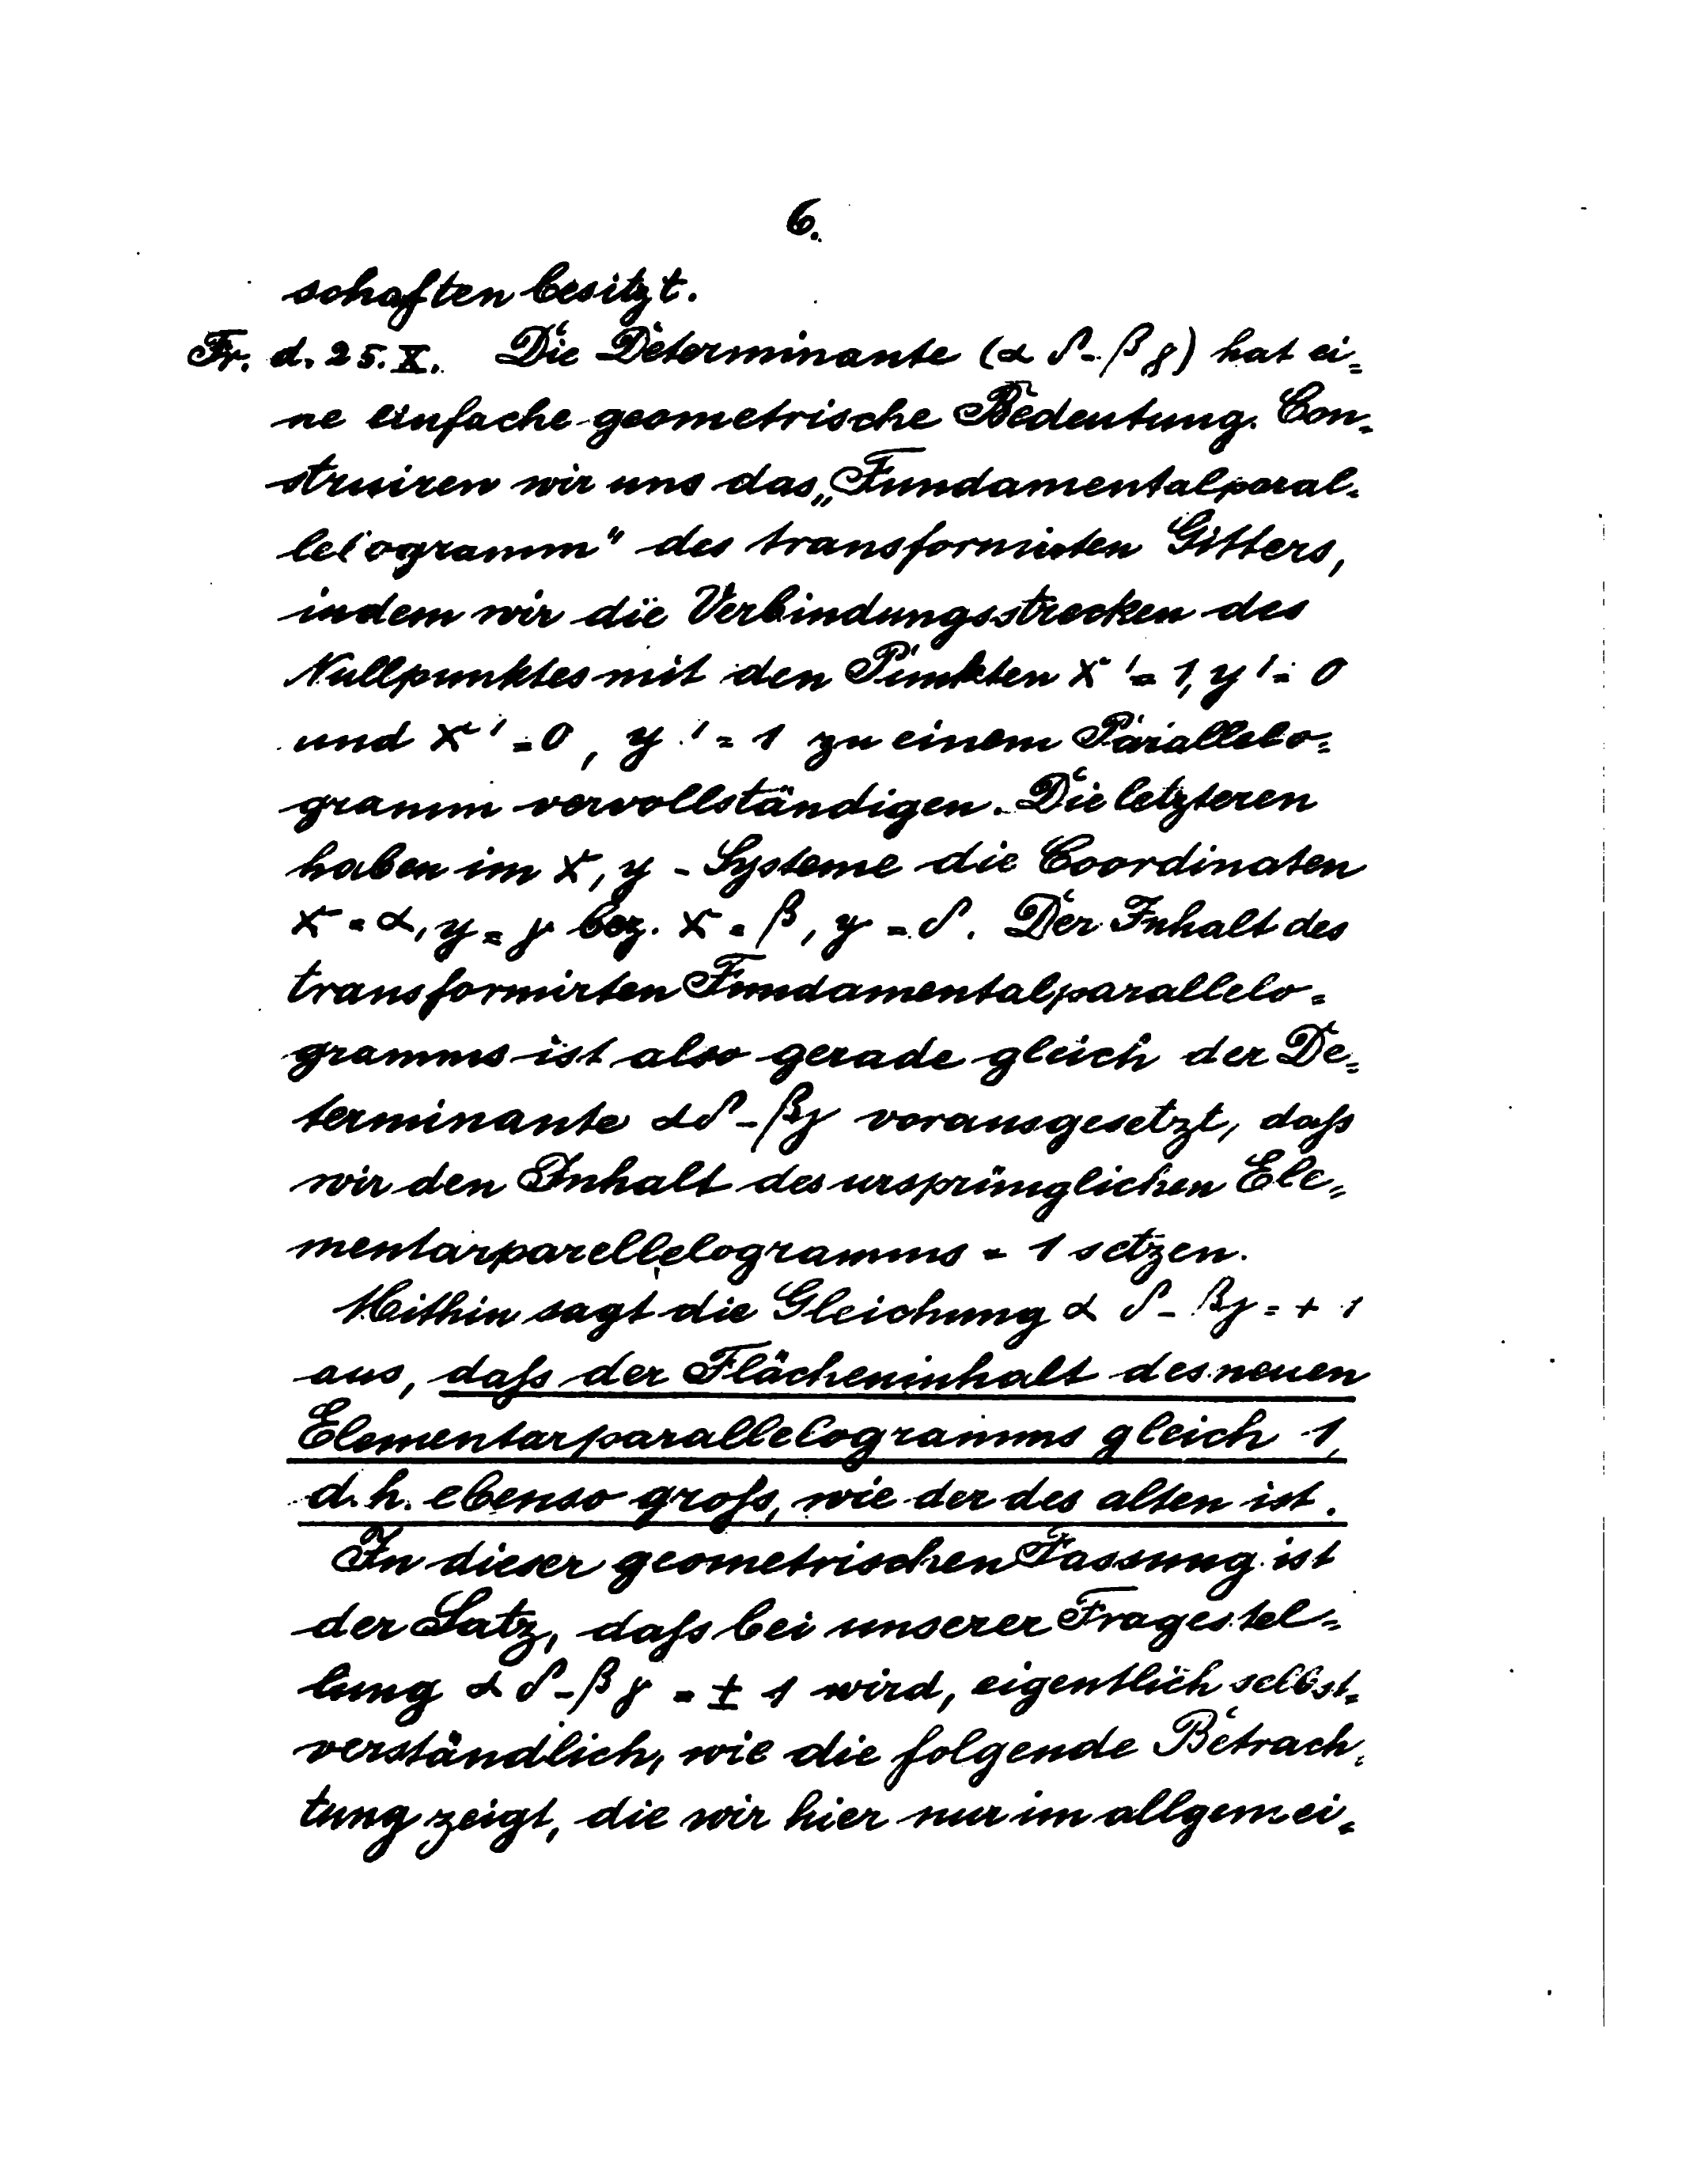 6.
schaften besitzt.
Fr. d. 25. X. Die Determinante (α δ - β γ) hat ei=
ne einfache geometrische Bedeutung. Con=
struiren wir uns das „Fundamentalparal=
lelogramm" des transformirten Gitters,
indem wir die Verbindungsstrecken des
Nullpunktes mit den Punkten x' = 1, y' = 0
und x' = 0, y' = 1 zu einem Parallelo=
gramm vervollständigen. Die letzteren
haben im x, y - Systeme die Coordinaten
x = α, y = γ bez. x = β, y = δ. Der Inhalt des
transformirten Fundamentalparallelo=
gramms ist also gerade gleich der De=
terminante αδ - βγ vorausgesetzt, daſs
wir den Inhalt des ursprünglichen Ele=
mentarparellelogramms = 1 setzen.
Mithin sagt die Gleichung α δ - βγ = + 1
aus, daſs der Flächeninhalt des neuen
Elementarparallelogramms gleich 1,
d. h. ebenso groſs, wie der des alten ist.
In dieser geometrischen Fassung ist
der Satz, daſs bei unserer Fragestel=
lung α δ - β γ = ± 1 wird, eigentlich selbst=
verständlich, wie die folgende Betrach=
tung zeigt, die wir hier nur im allgemei=